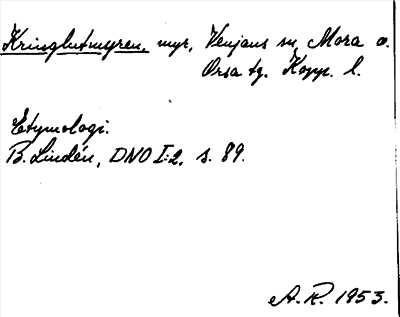 Kringlutmyren, myr, Venjans sn, Mora o.
Orsa tg. Kopp. l.
Etymologi.
B. Lindén, DNO I:2, s. 89.
A.R. 1953.